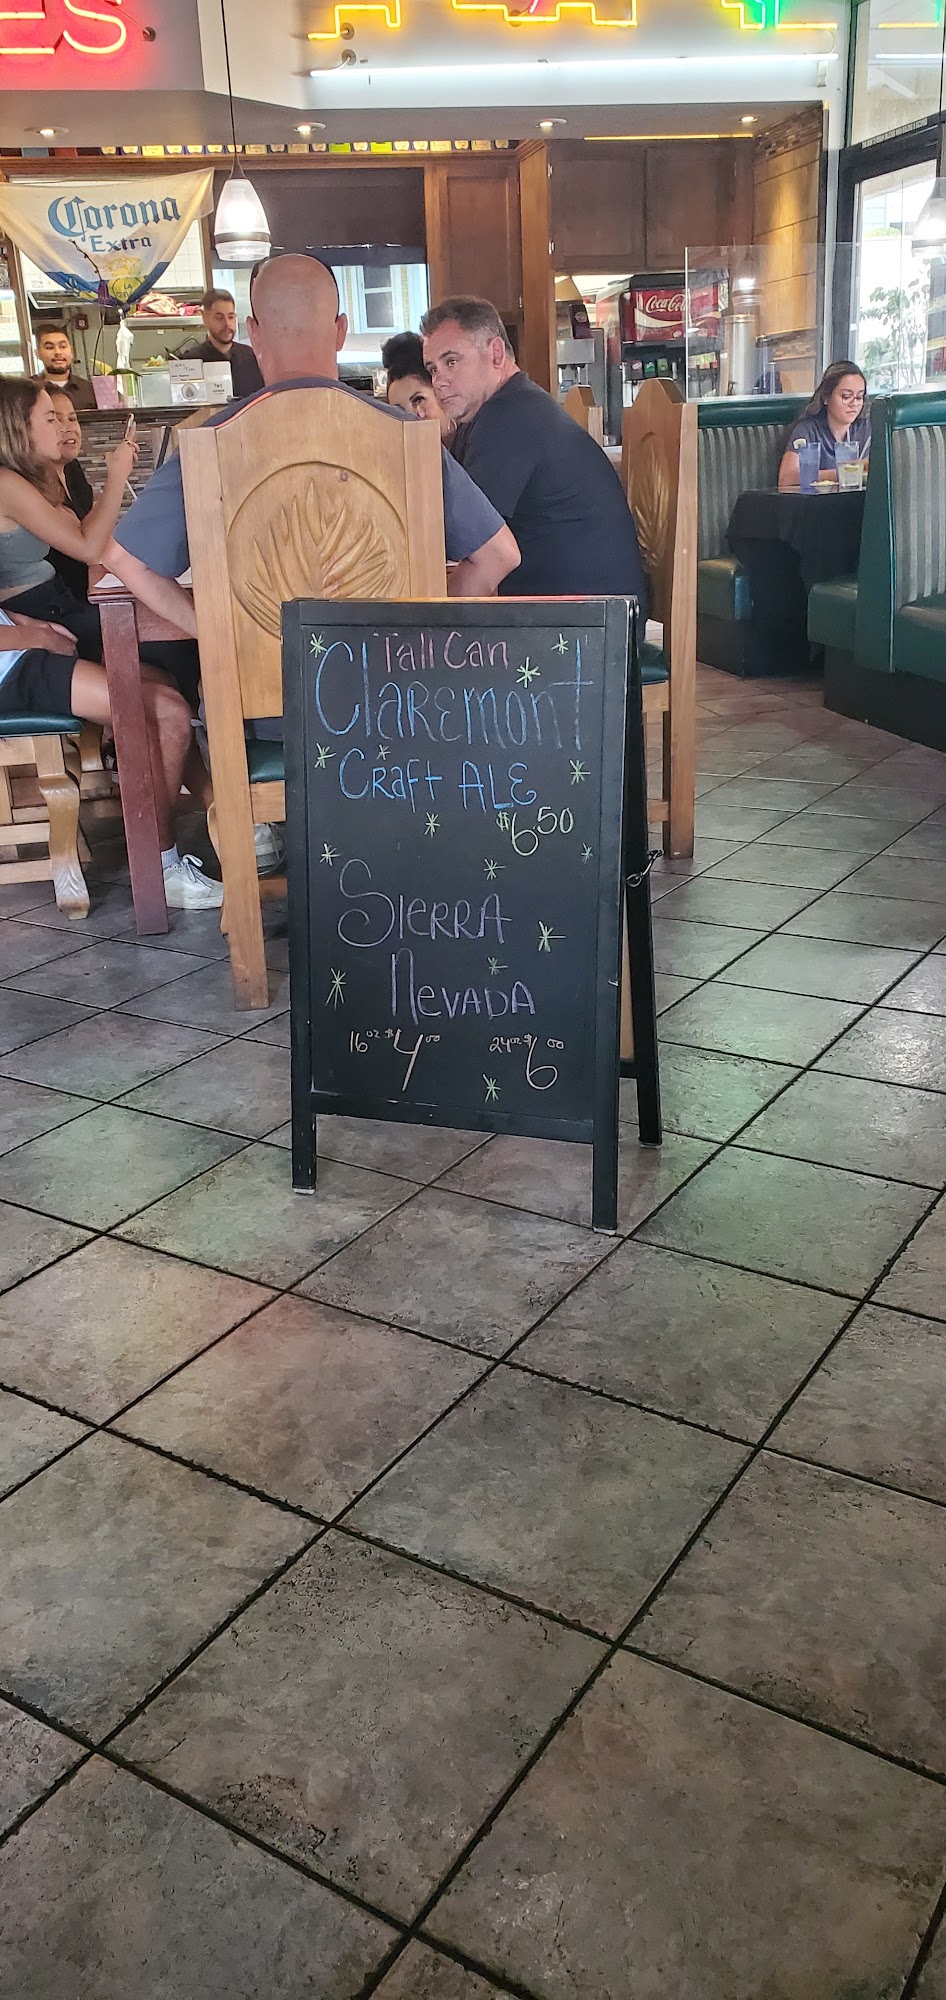 ES
Corona
Extra
LA
Coca-Cola
Tall Can
Claremont
Craft Ale
$6.50
Sierra
Nevada
16oz $4.00 24oz $6.00